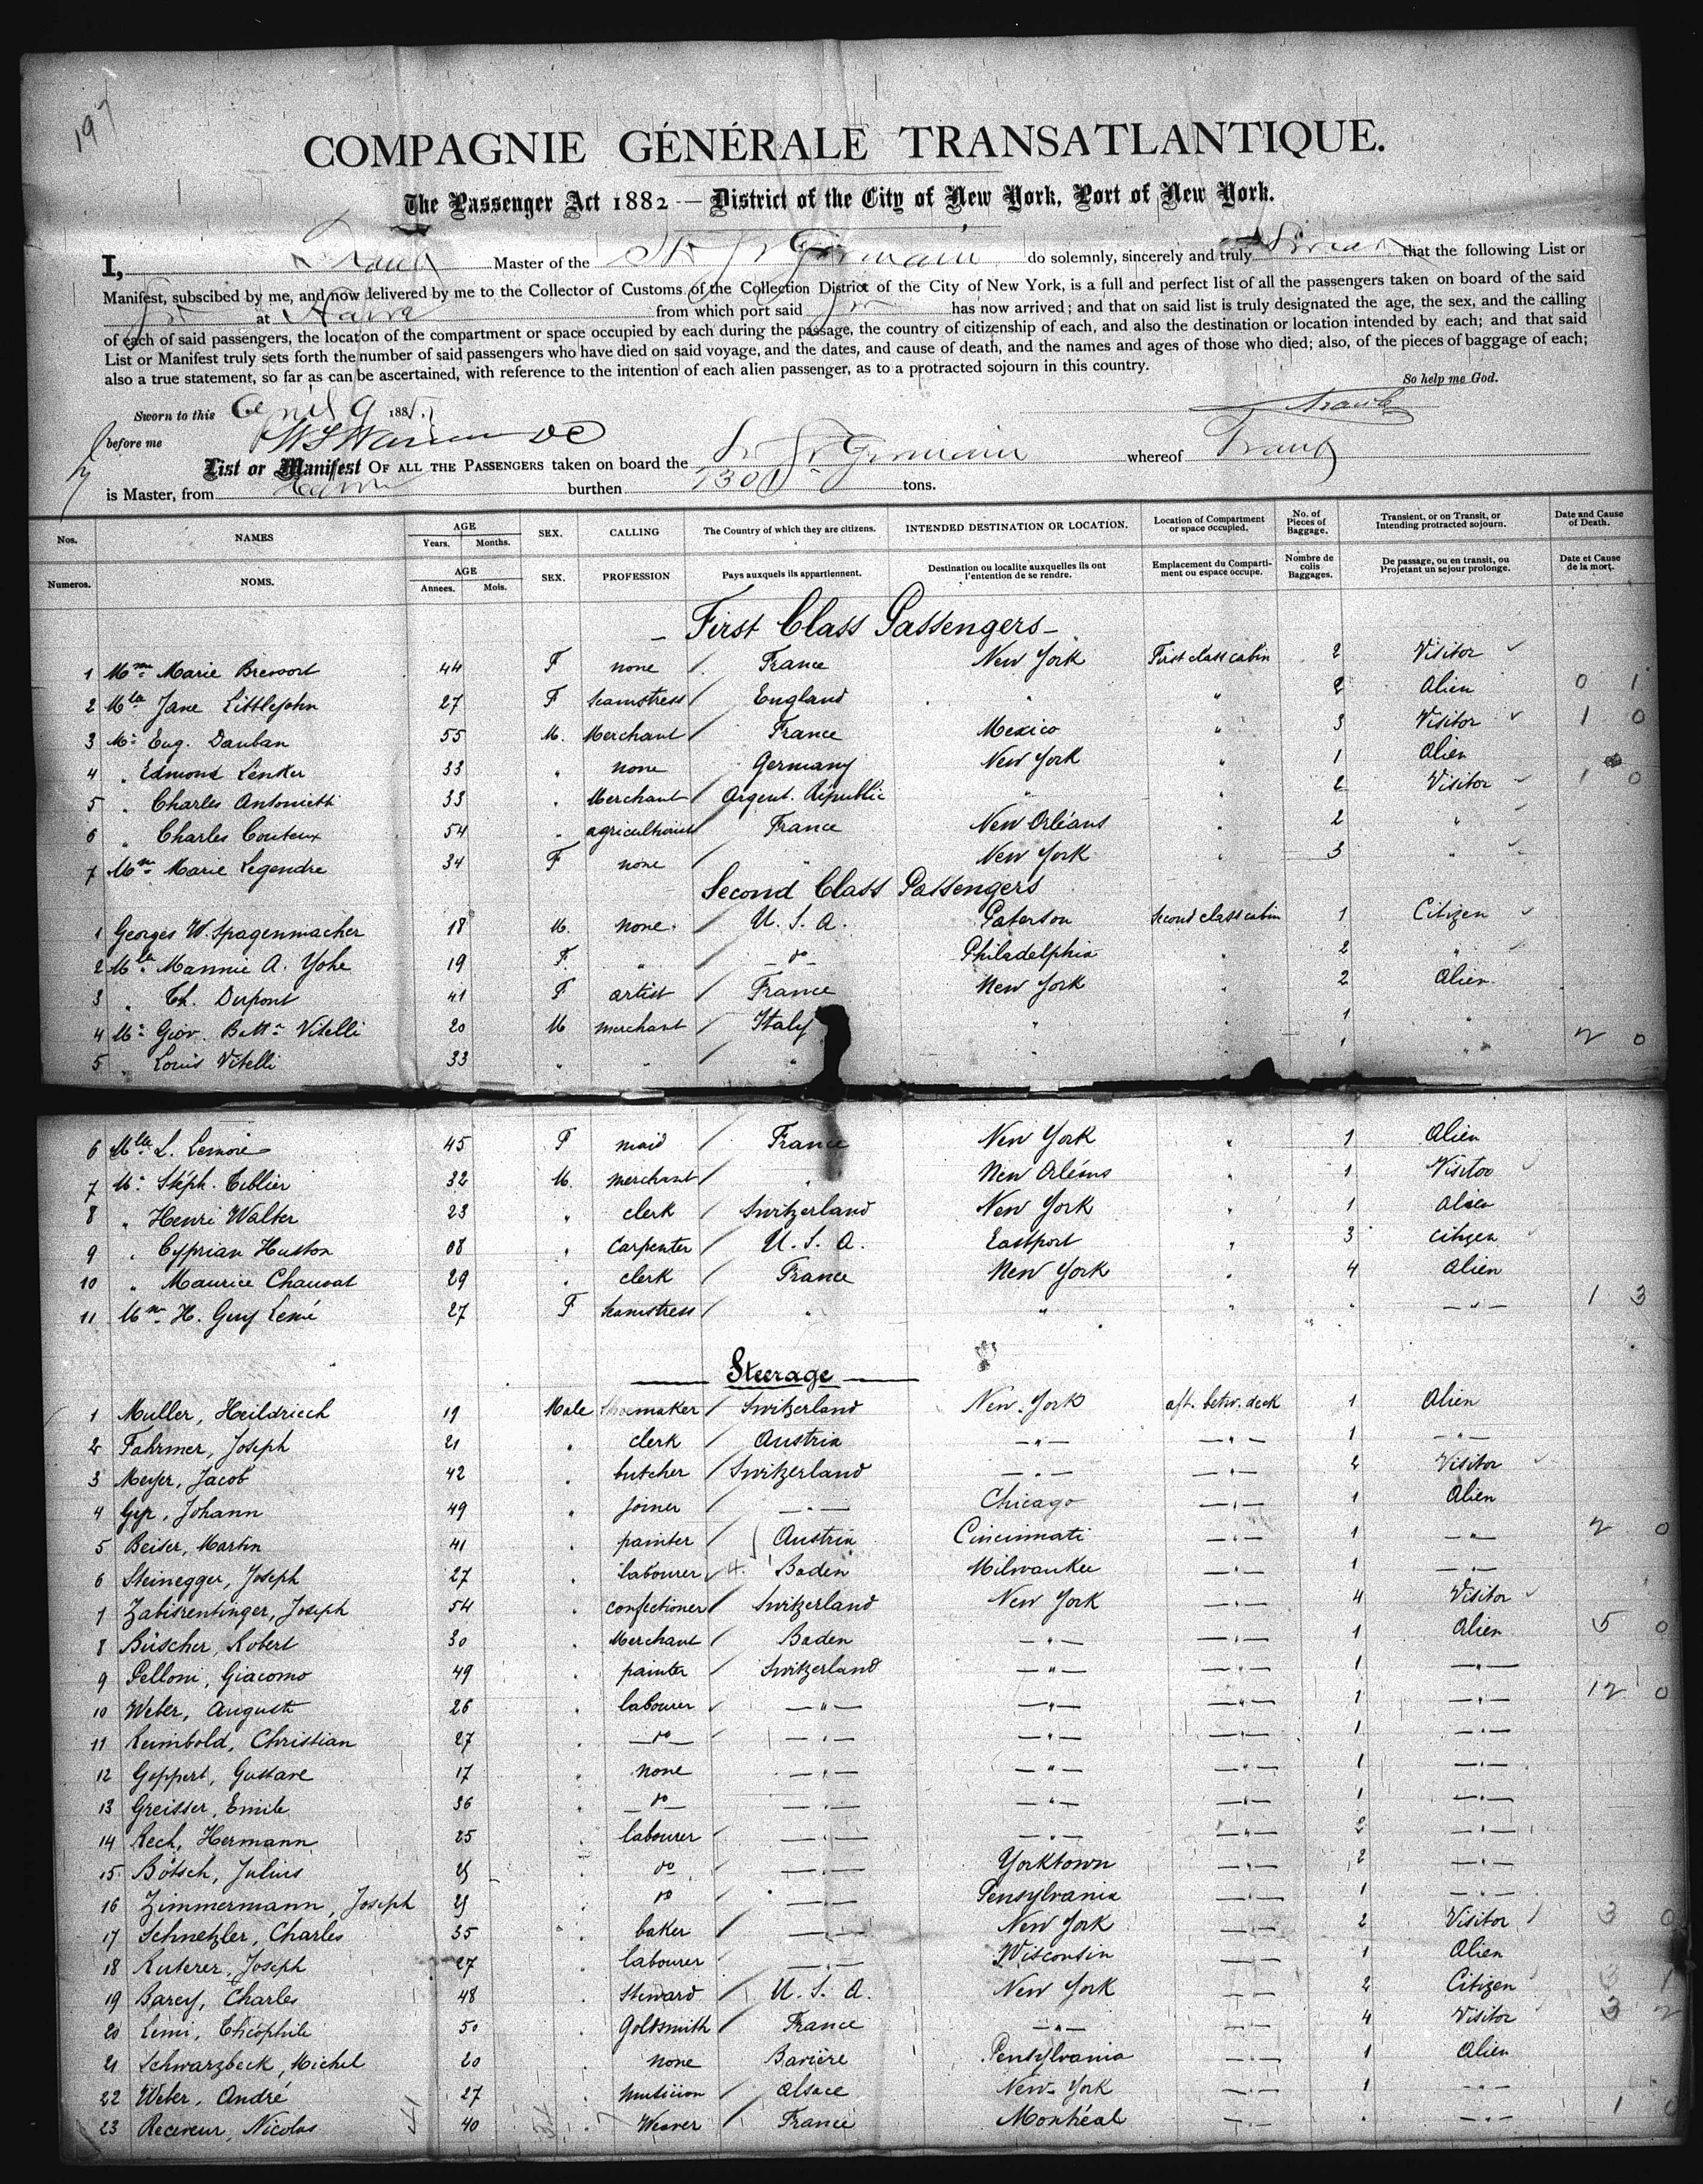 197
COMPAGNIE GÉNÉRALE TRANSATLANTIQUE.
The Passenger Act 1882 — District of the City of New York, Port of New York.
I, Traub Master of the St Germain do solemnly, sincerely and truly swear that the following List or
Manifest, subscibed by me, and now delivered by me to the Collector of Customs of the Collection District of the City of New York, is a full and perfect list of all the passengers taken on board of the said
at Havre from which port said has now arrived; and that on said list is truly designated the age, the sex, and the calling
of each of said passengers, the location of the compartment or space occupied by each during the passage, the country of citizenship of each, and also the destination or location intended by each; and that said
List or Manifest truly sets forth the number of said passengers who have died on said voyage, and the dates, and cause of death, and the names and ages of those who died; also, of the pieces of baggage of each;
also a true statement, so far as can be ascertained, with reference to the intention of each alien passenger, as to a protracted sojourn in this country.
So help me God.
Sworn to this April 9 188 Traub
before me
List or Manifest OF ALL THE PASSENGERS taken on board the St Germain whereof Traub
is Master, from Havre burthen tons.
Nos. NAMES AGE Years. Months. SEX. CALLING The Country of which they are citizens. INTENDED DESTINATION OR LOCATION. Location of Compartment or space occupied. No. of Pieces of Baggage. Transient, or on Transit, or Intending protracted sojourn. Date and Cause of Death.
Numeros. NOMS. AGE Annees. Mois. SEX. PROFESSION Pays auxquels ils appartiennent. Destination ou localite auxquelles ils ont l'entention de se rendre. Emplacement du Comparti-ment ou espace occupe. Nombre de colis Baggages. De passage, ou en transit, ou Projetant un sejour prolonge. Date et Cause de la mort.
First Class Passengers
1 Mme Marie Brevoort 44 F none France New York First class cabin 2 Visitor
2 Mlle Jane Littlejohn 27 F Seamstress England " " 2 Alien 0 1
3 Mr Eug. Dauban 55 M. Merchant France Mexico " 3 Visitor 1 0
4 " Edmond Lenker 33 " none Germany New York " 1 Alien
5 " Charles Antonietti 33 " Merchant Argent. Républic " " 2 Visitor 1 0
6 " Charles Couteux 54 " agriculturist France New Orléans " 2 "
7 Mme Marie Legendre 34 F none " New York " 3 "
Second Class Passengers
1 Georges W. Spagenmacher 18 M. none U. S. A. Paterson Second class cabin 1 Citizen
2 Mlle Mannie A. Yohe 19 F. " do Philadelphia " 2 "
3 " Th. Dupont 41 F artist France New York " 2 Alien
4 Mr Giov. Batt. Vitelli 20 M merchant Italy " " 1 "
5 " Louis Vitelli 33 " " " " " 1 " 2 0
6 Mlle L. Lemoie 45 F maid France New York " 1 Alien
7 Mr Stéph. Tiblier 32 M. merchant " New Orléans " 1 Visitor
8 " Henri Walter 23 " clerk Switzerland New York " 1 Alien
9 " Cyprian Huston 08 " Carpenter U. S. A. Eastport " 3 citizen
10 " Maurice Chauvat 29 " clerk France New York " 4 Alien
11 Mme H. Guy 27 F Seamstress " " " " — " — 1 3
Steerage
1 Muller, Heildriech 19 Male Shoemaker Switzerland New York aft. betw. deck 1 Alien
2 Fahrmer, Joseph 21 " clerk Austria — " — — " — 1 — " —
3 Meyer, Jacob 42 " butcher Switzerland — " — — " — 2 Visitor
4 Gyr, Johann 49 " joiner — " — Chicago — " — 1 Alien
5 Beiser, Martin 41 " painter Austria Cincinnati — " — 1 — " — 2 0
6 Steinegger, Joseph 27 " labourer Baden Milwaukee — " — 1 — " —
7 Zabisrentinger, Joseph 54 " confectioner Switzerland New York — " — 4 Visitor
8 Büscher, Robert 30 " Merchant Baden — " — — " — 1 Alien 5 0
9 Pelloni, Giacomo 49 " painter Switzerland — " — — " — 1 — " —
10 Weber, August 26 " labourer — " — — " — — " — 1 — " — 12 0
11 Reimbold, Christian 27 " do — " — — " — — " — 1 — " —
12 Geppert, Gustave 17 " none — " — — " — — " — 1 — " —
13 Greisser, Emile 36 " do — " — — " — — " — 1 — " —
14 Rech, Hermann 25 " labourer — " — — " — — " — 2 — " —
15 Bötsch, Julius 25 " do — " — Yorktown — " — 2 — " —
16 Zimmermann, Joseph 25 " do — " — Pensylvania — " — 1 — " —
17 Schnetzler, Charles 35 " baker — " — New York — " — 2 Visitor 3 0
18 Ruterer, Joseph 27 " labourer — " — Wisconsin — " — 1 Alien
19 Barcy, Charles 48 " Steward U. S. A. New York — " — 2 Citizen 1
20 Limi, Théophile 50 " Goldsmith France — " — — " — 4 Visitor 3 2
21 Schwarzbeck, Michel 20 " none Bavière Pensylvania — " — 1 Alien
22 Weber, André 27 " musician Alsace New-York — " — 1 — " —
23 Receveur, Nicolas 40 " Weaver France Montréal — " — " — " — 1 0